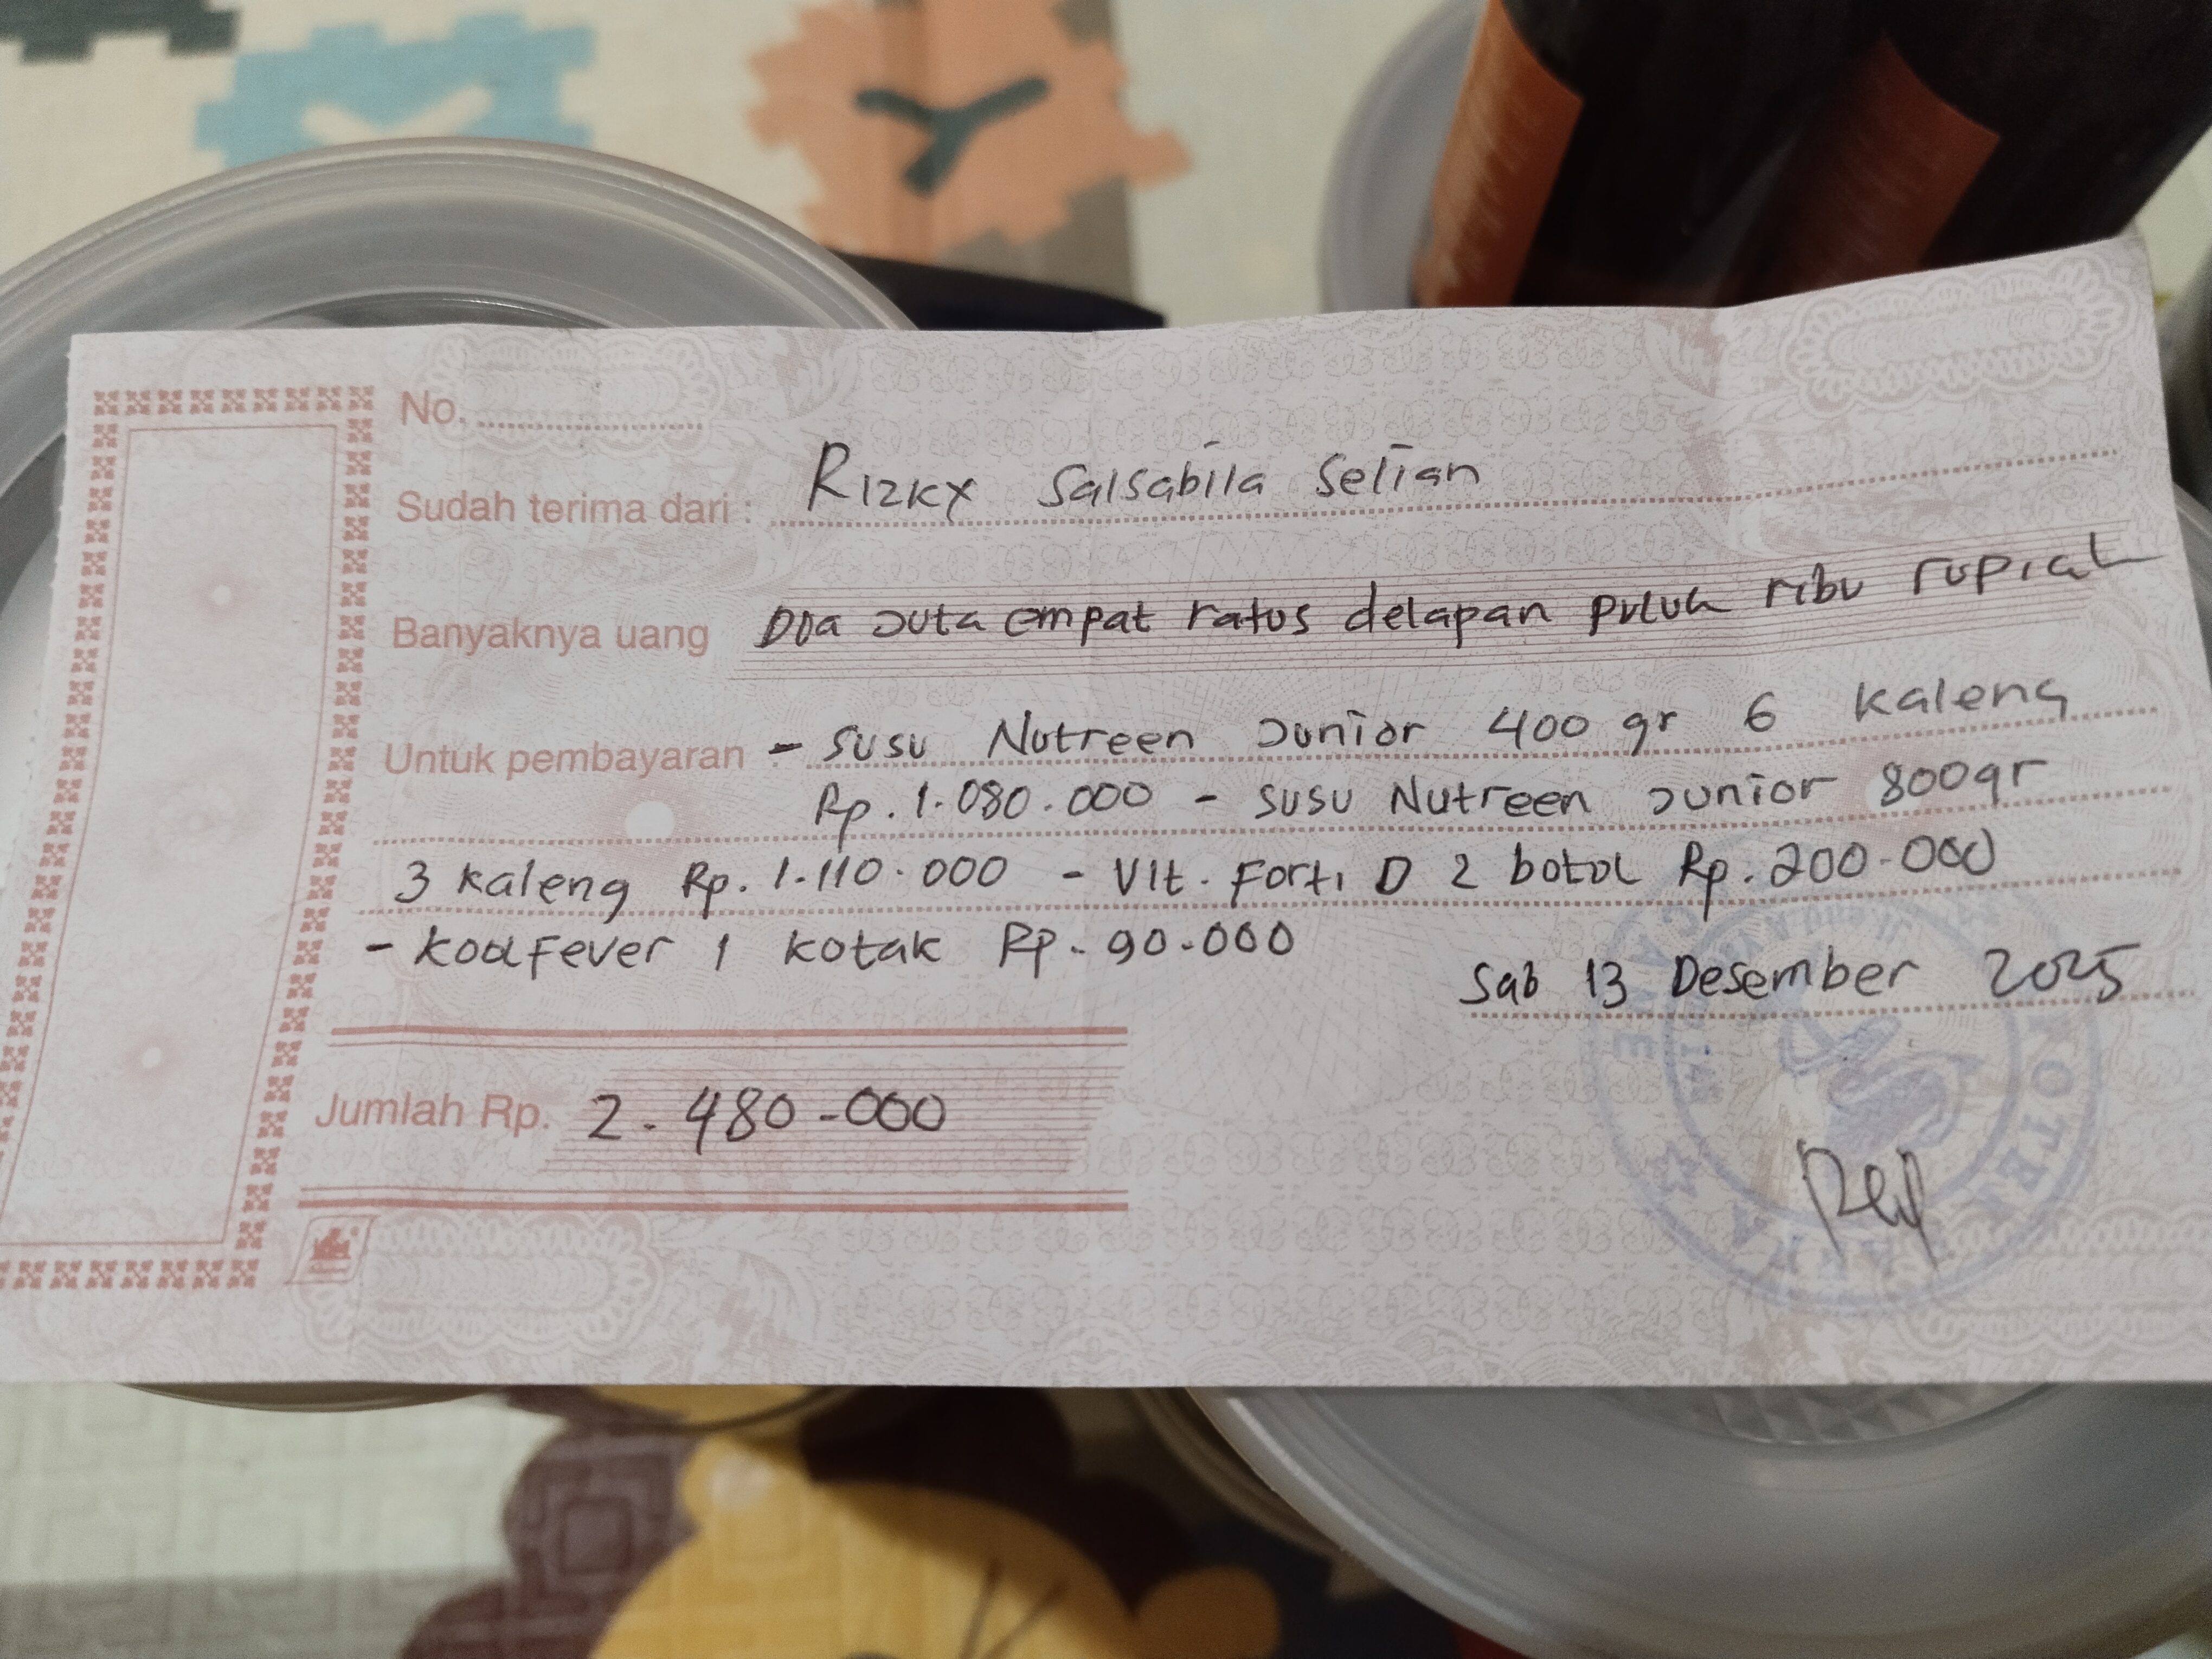 No.
Sudah terima dari : Rizky Salsabila Selian
Banyaknya uang Dua Juta empat ratus delapan puluh ribu rupiah
Untuk pembayaran : - Susu Nutreen Junior 400 gr 6 kaleng
Rp. 1.080.000 - Susu Nutreen Junior 800gr
3 kaleng Rp. 1.110.000 - Vit. Forti D 2 botol Rp. 200.000
- koolfever 1 kotak Rp. 90.000
Sab 13 Desember 2025
Jumlah Rp. 2.480.000